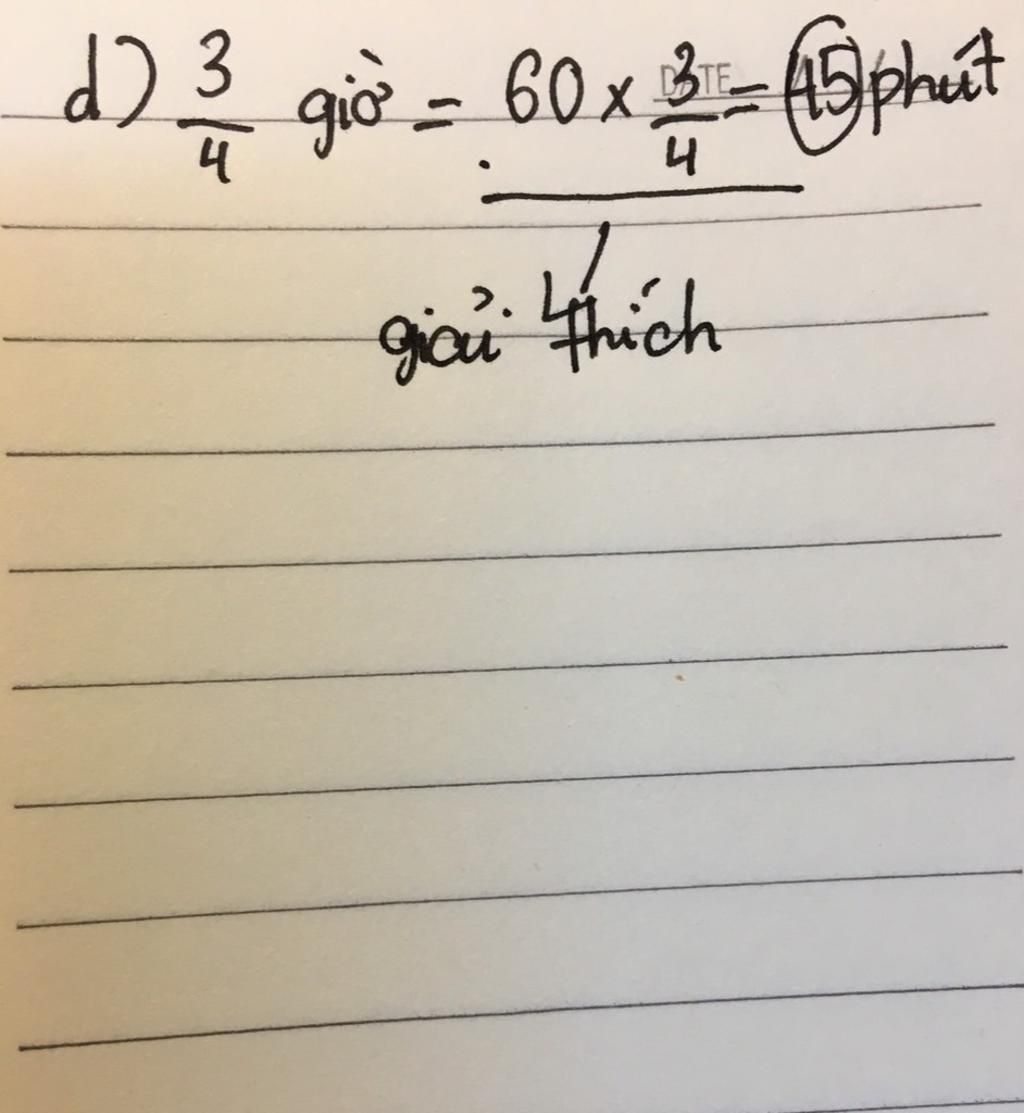 d) 3/4 giờ = 60 x 3/4 = 45 phút
DATE
giải thích